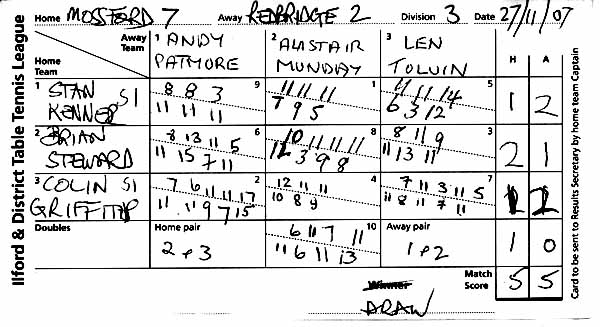 Ilford & District Table Tennis League
Home MOSSFORD 7 Away REDBRIDGE 2 Division 3 Date 27/11/07
Away Team 1 ANDY PATMORE 2 ALISTAIR MUNDAY 3 LEN TOLVIN H A
Home Team
1 STAN KENNED S1
9 8 8 3
11 11 11
1 11 11 11
7 9 5
5 11 11 14
6 3 12
1 2
2 BRIAN STEWARD
6 8 13 11 5
11 15 7 11
8 10 11 11 11
12 3 9 8
3 8 11 9
11 13 11
2 1
3 COLIN S1 GRIFFITH
2 7 6 11 11 17
11 11 9 7 15
4 12 11 11
10 8 9
7 7 11 3 11 5
11 8 11 7 11
1 2
Doubles Home pair 2+3
10 6 11 7 11
11 6 11 13
Away pair 1+2
1 0
Winner DRAW Match Score 5 5
Card to be sent to Results Secretary by home team Captain